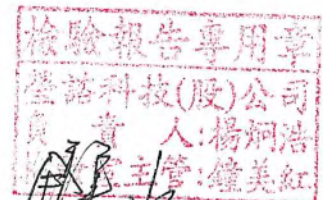 檢驗報告專用章
誉諾科技(股)公司
負責人:楊炯浩
主管:鐘美紅